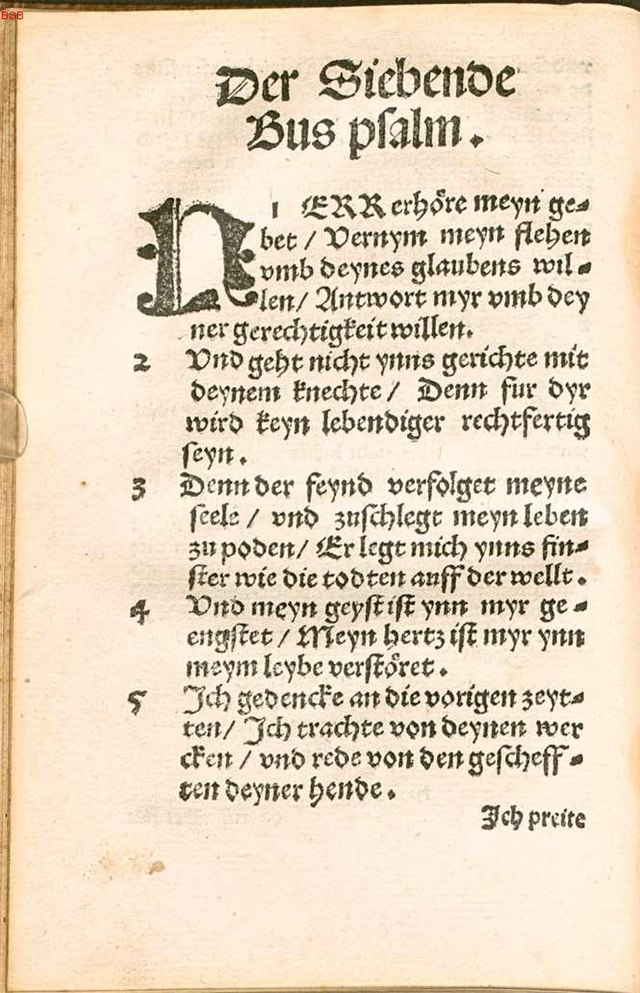 BSB
Der Siebende
Bus psalm.
H 1 ERR erhöre meyn ge=
bet / Vernym meyn flehen
vmb deynes glaubens wil=
len/ Antwort myr vmb dey
ner gerechtigkeit willen.
2 Vnd geht nicht ynns gerichte mit
deynem knechte / Denn fur dyr
wird keyn lebendiger rechtfertig
seyn.
3 Denn der feynd verfolget meyne
seele / vnd zuschlegt meyn leben
zu poden/ Er legt mich ynns fin=
ster wie die todten auff der wellt.
4 Vnd meyn geyst ist ynn myr ge=
engstet / Meyn hertz ist myr ynn
meym leybe verstöret.
5 Ich gedencke an die vorigen zeyt=
ten/ Ich trachte von deynen wer
cken / vnd rede von den gescheff=
ten deyner hende.
Ich preite